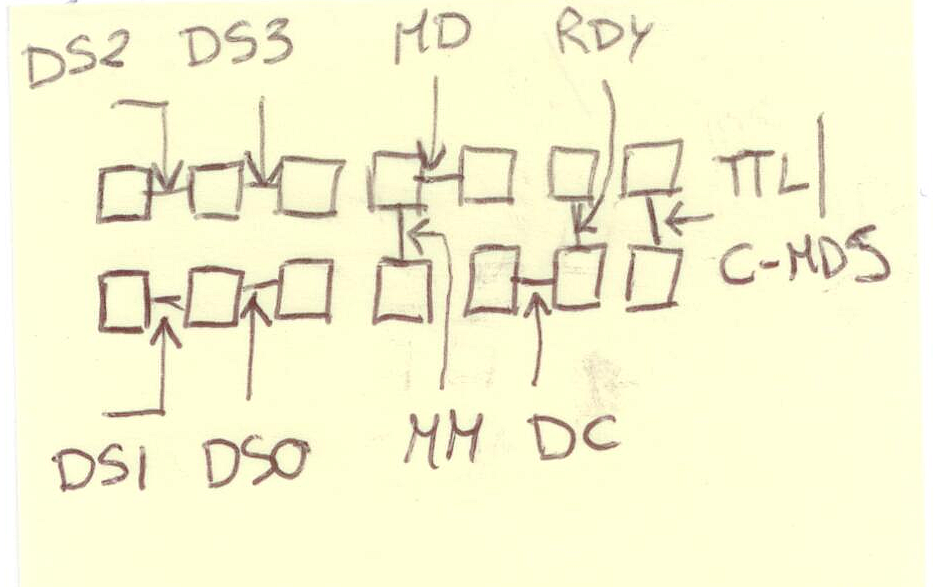 DS2 DS3 MD RDY
TTL|
C-MDS
DS1 DS0 MM DC